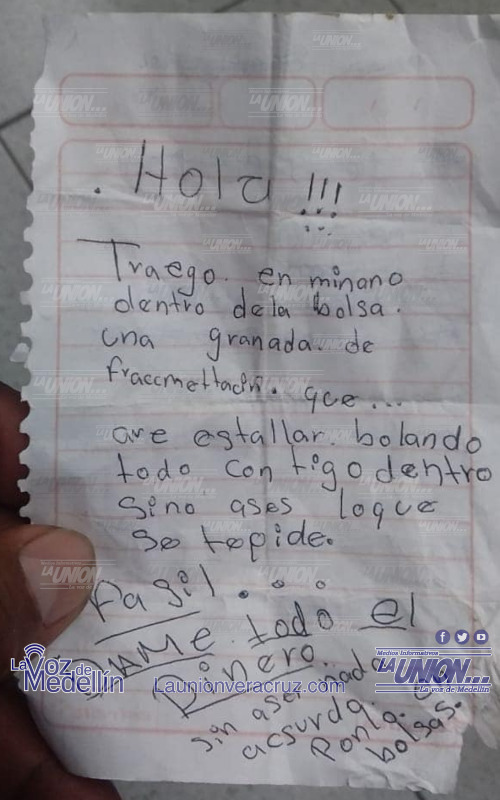 . Hola !!!
Traego. en minano
dentro dela bolsa.
una granada. de
fraccmettación. que...
are estallar. bolando
todo con tigo dentro
sino ases loque
se tepide.
Fasil...
DAME. todo el
Dinero...
sin aser nada
acsurda.
Ponla en
bolsas.
La Voz de
Medellín
Launionveracruz.com
Medios Informativos
LA UNIÓN...
La voz de Medellín